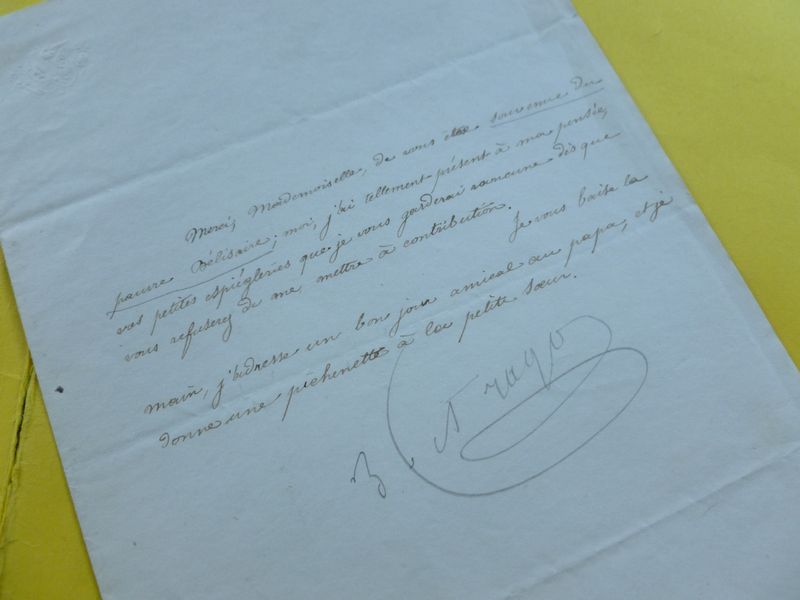 Merci, Mademoiselle, de vous être souvenue du
pauvre Bélisaire; moi, j'ai tellement présent à ma pensée,
vos petites espiégleries que je vous garderai rancune dès que
vous refuserez de me mettre à contribution.
Je vous baise la
main, j'adresse un bon jour amical au papa, et je
donne une pichenette à la petite sœur.
Arago